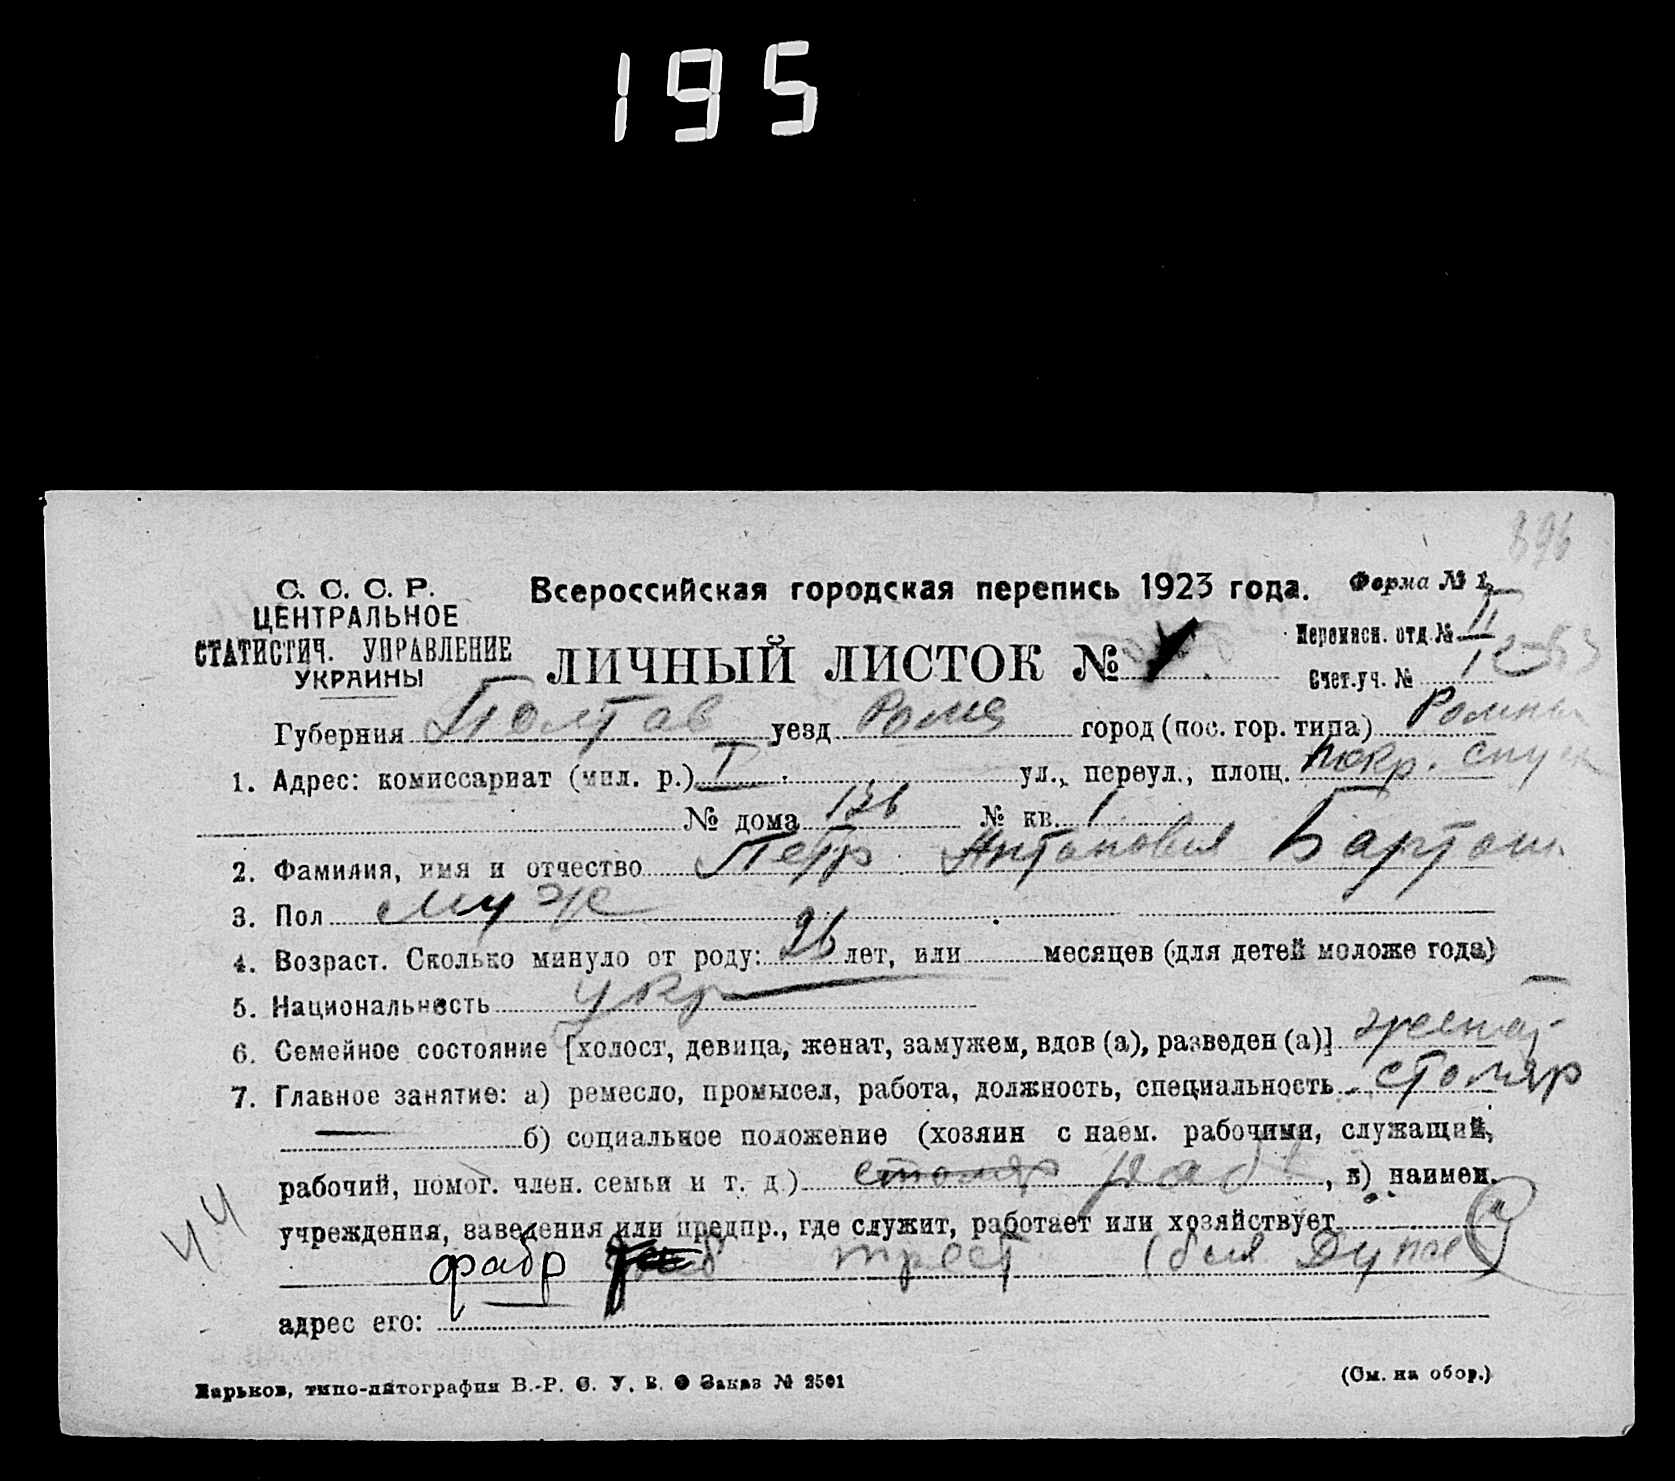 195
896
С. С. С. Р.
ЦЕНТРАЛЬНОЕ
СТАТИСТИЧ. УПРАВЛЕНИЕ
УКРАИНЫ
Всероссийская городская перепись 1923 года.
Форма № 1
ЛИЧНЫЙ ЛИСТОК №
Переписн. отд. № II
Счет.уч. №
Губерния Полтав уезд Ром город (пос. гор. типа) Ромны
1. Адрес: комиссариат (мил. р.) I ул., переул., площ. покр. спуск
№ дома № кв. 1
2. Фамилия, имя и отчество Петр Антонович Бартош
3. Пол муж
4. Возраст. Сколько минуло от роду: 26 лет, или месяцев (для детей моложе года)
5. Национальность укр
6. Семейное состояние [холост, девица, женат, замужем, вдов (а), разведен (а)] женат
7. Главное занятие: а) ремесло, промысел, работа, должность, специальность столяр
б) социальное положение (хозяин с наем. рабочими, служащий,
рабочий, помог. член. семьи и т. д.) столяр раб , в) наимен.
учреждения, заведения или предпр., где служит, работает или хозяйствует
фабр трест
адрес его:
44
Харьков, типо-литография В.-Р. С. У. В. О Заказ № 2501
(См. на обор.)